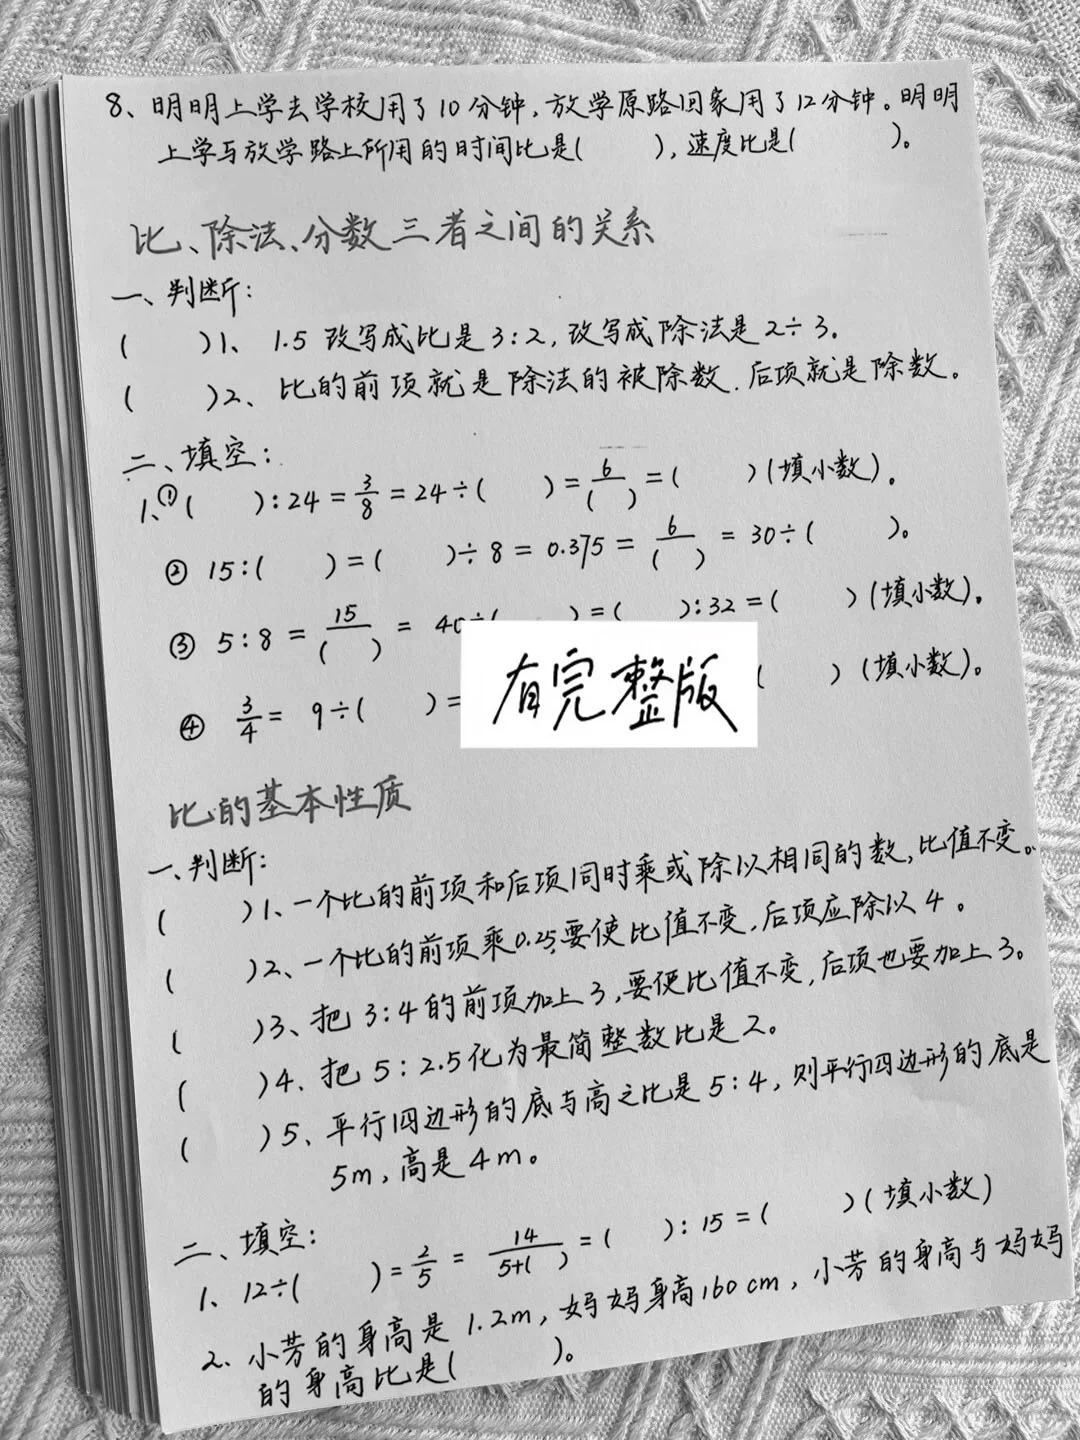 8、明明上学去学校用了10分钟，放学原路回家用了12分钟。明明
上学与放学路上所用的时间比是(    )，速度比是(    )。
比、除法、分数三者之间的关系
一、判断：
(    )1、1.5 改写成比是3:2，改写成除法是2÷3。
(    )2、比的前项就是除法的被除数，后项就是除数。
二、填空：
1、①(    ):24=3/8=24÷(    )=6/(    )=(    )(填小数)。
② 15:(    )=(    )÷8=0.375=6/(    )=30÷(    )。
③ 5:8=15/(    )=40÷(    )=(    ):32=(    )(填小数)。
④ 3/4=9÷(    )= (    )(填小数)。
有完整版
比的基本性质
一、判断：
(    )1、一个比的前项和后项同时乘或除以相同的数，比值不变。
(    )2、一个比的前项乘0.25，要使比值不变，后项应除以4。
(    )3、把3:4的前项加上3，要使比值不变，后项也要加上3。
(    )4、把5:2.5化为最简整数比是2。
(    )5、平行四边形的底与高之比是5:4，则平行四边形的底是
5m，高是4m。
二、填空：
1、12÷(    )=2/5=14/5+(    )=(    ):15=(    )(填小数)
2、小芳的身高是1.2m，妈妈身高160cm，小芳的身高与妈妈
的身高比是(    )。